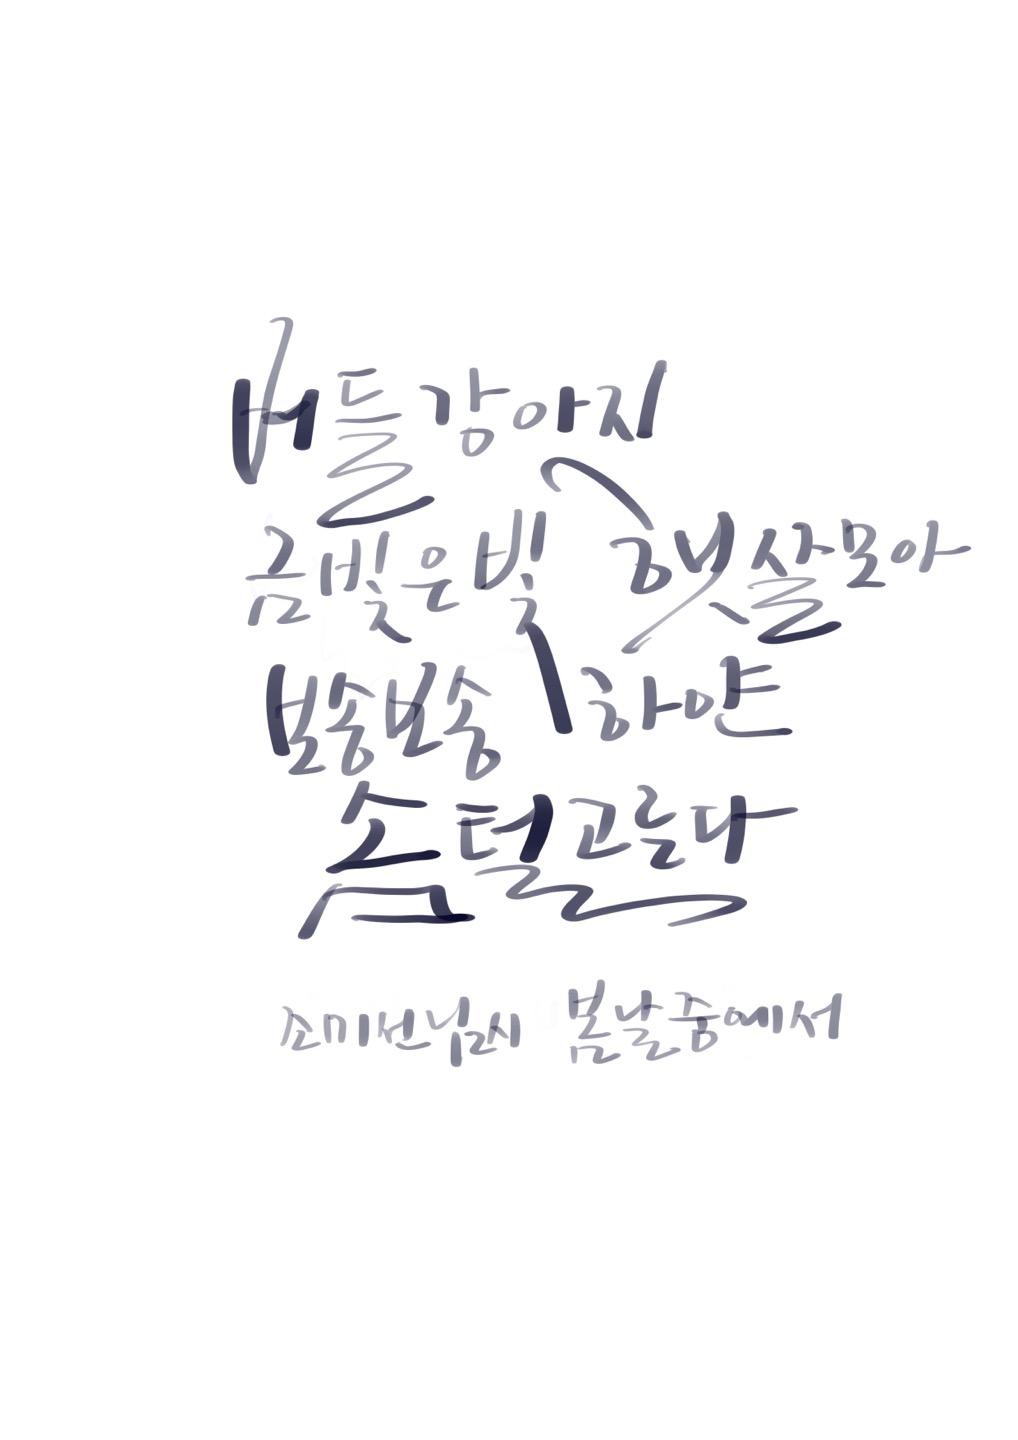 버들강아지
금빛은빛 햇살모아
보송보송 하얀
솜털고른다
조미선님시 봄날중에서